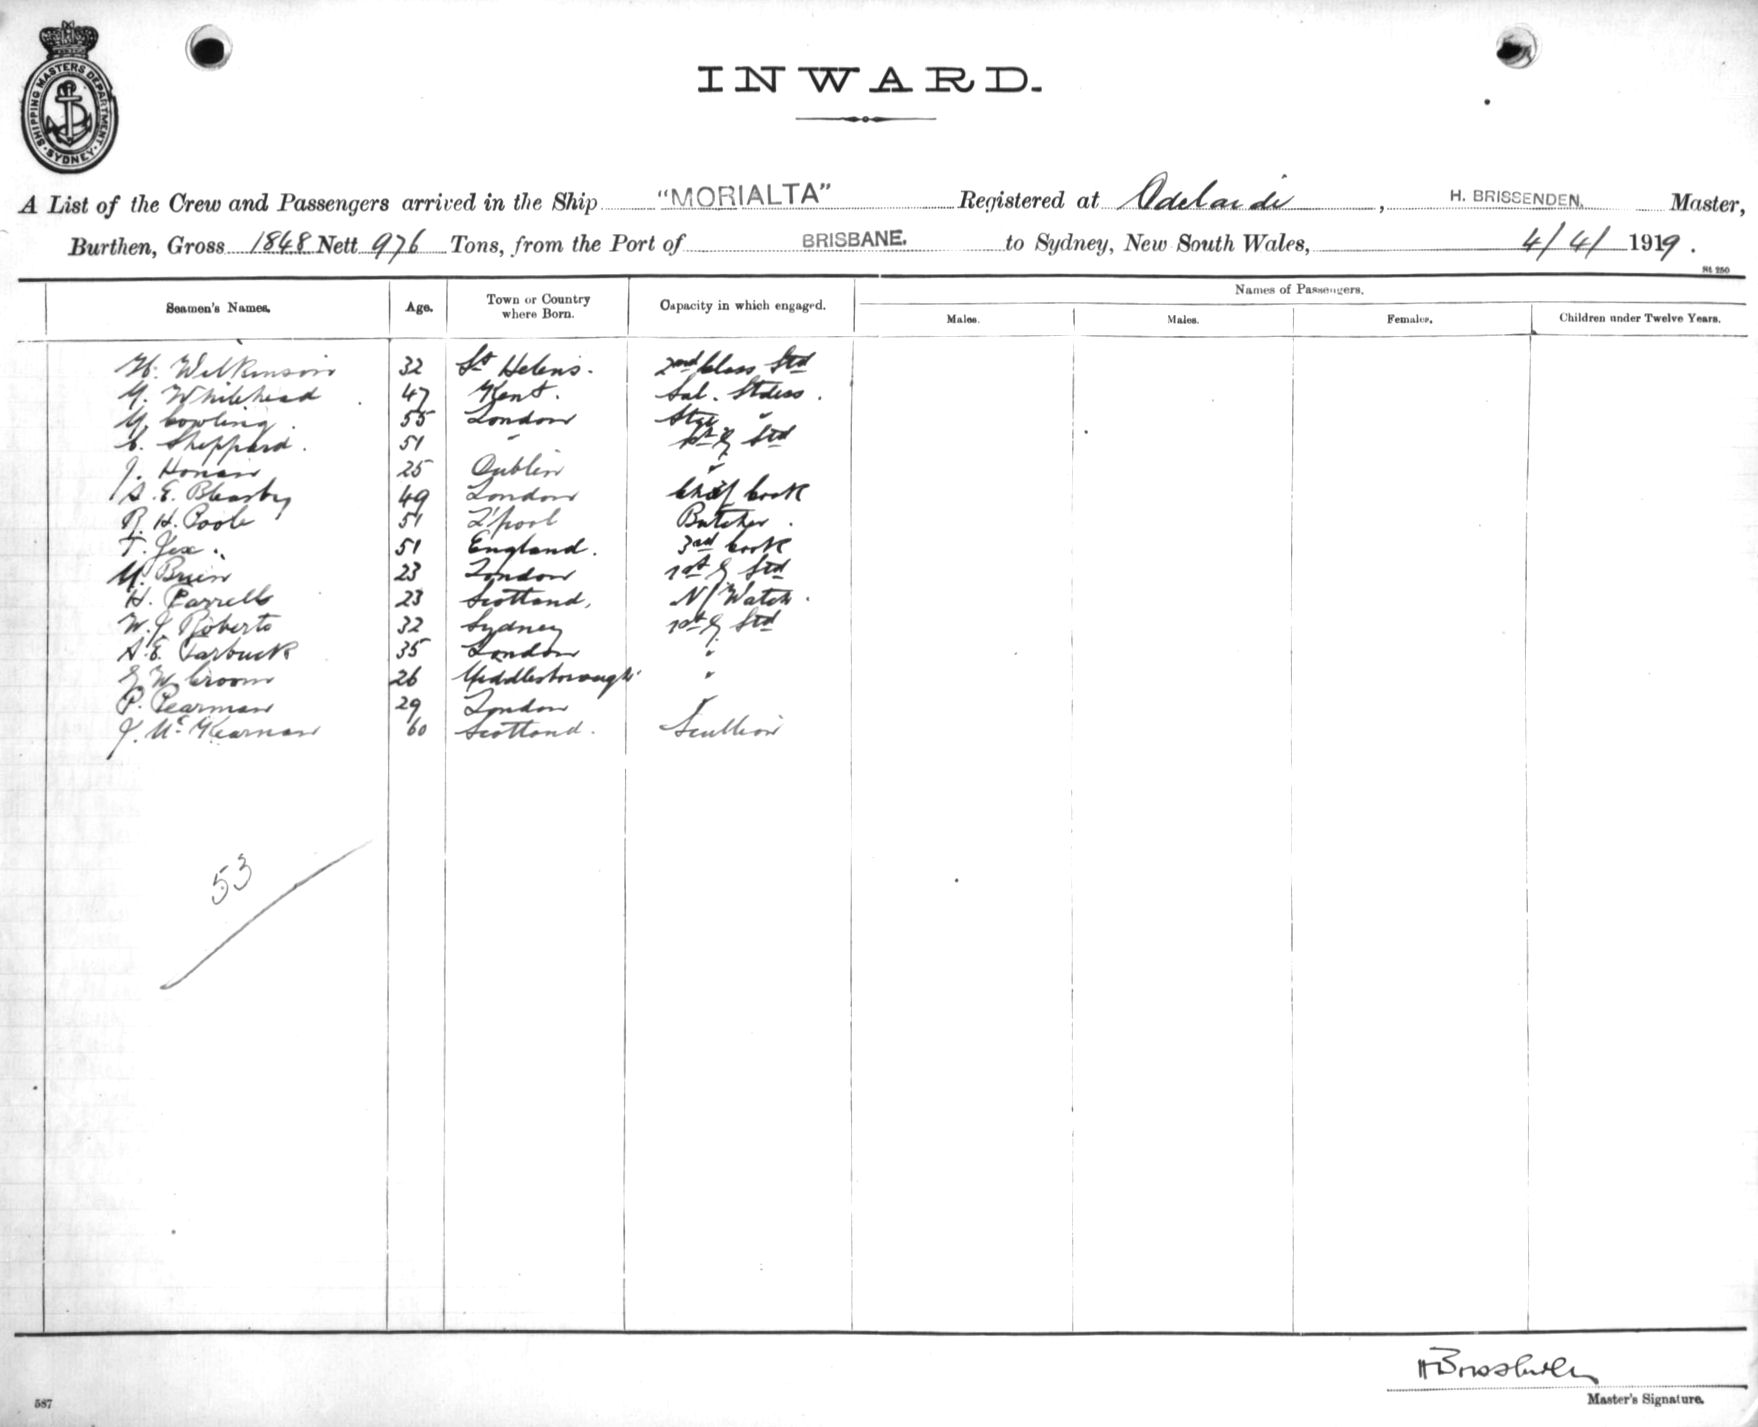 SHIPPING MASTERS DEPARTMENT.
SYDNEY
INWARD.
A List of the Crew and Passengers arrived in the Ship "MORIALTA" Registered at Adelaide, H. BRISSENDEN. Master,
Burthen, Gross 1848 Nett 976 Tons, from the Port of BRISBANE. to Sydney, New South Wales, 4/4/1919.
St 250
Seamen's Names. Age. Town or Country where Born. Capacity in which engaged. Names of Passengers.
Males. Males. Females. Children under Twelve Years.
H. Wilkinson 32 St Helens. 2nd Class Std
M. Whitehead 47 Kent. Sal. Stdess.
M. Cowling. 55 London Stge "
C. Sheppard. 51 " 1st G Std
J. Honan 25 Dublin "
A. E. Bleasby 49 London Chief Cook
R. H. Poole 51 L'pool Butcher.
T. Jex. 51 England. 3rd Cook
M. Brien 23 London 1st G Std
H. Parrells 23 Scotland, N/Watch.
W. J. Roberts 32 Sydney 1st G Std
A. E. Tarbuck 35 London "
E W Croom 26 Middlesborough "
P. Pearman 29 London "
J. McKearnan 60 Scotland. Scullion
53
H Brissenden
Master's Signature.
587